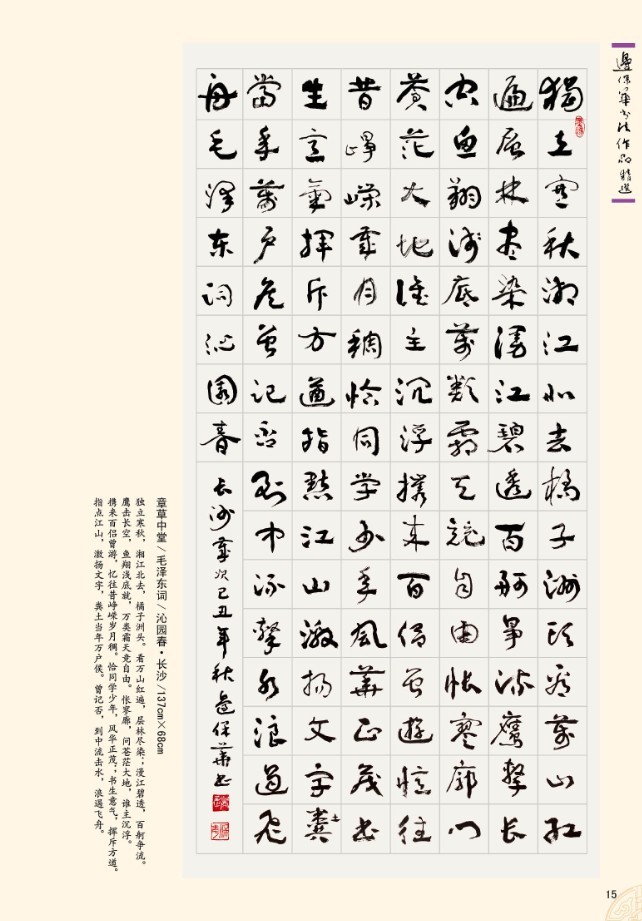 邊保華书法作品精選
獨立寒秋湘江北去橘子洲头看萬山红
遍层林尽染漫江碧透百舸争流鷹擊长
空魚翔浅底萬類霜天競自由悵寥廓问
蒼茫大地谁主沉浮携来百侣曾遊忆往
昔崢嵘歲月稠恰同学少年風華正茂书
生意氣揮斥方遒指點江山激扬文字糞土
當年萬户侯曾记否到中流擊水浪遏飞
舟毛泽东词沁園春长沙歲次己丑年秋邊保華书
章草中堂／毛泽东词／沁园春·长沙／137cm×68cm
独立寒秋，湘江北去，橘子洲头。看万山红遍，层林尽染；漫江碧透，百舸争流。
鹰击长空，鱼翔浅底就，万类霜天竞自由。怅寥廓，问苍茫大地，谁主沉浮。
携来百侣曾游，忆往昔峥嵘岁月稠。恰同学少年，风华正茂；书生意气，挥斥方道。
指点江山，激扬文字，粪土当年万户侯。曾记否，到中流击水，浪遏飞舟。
15